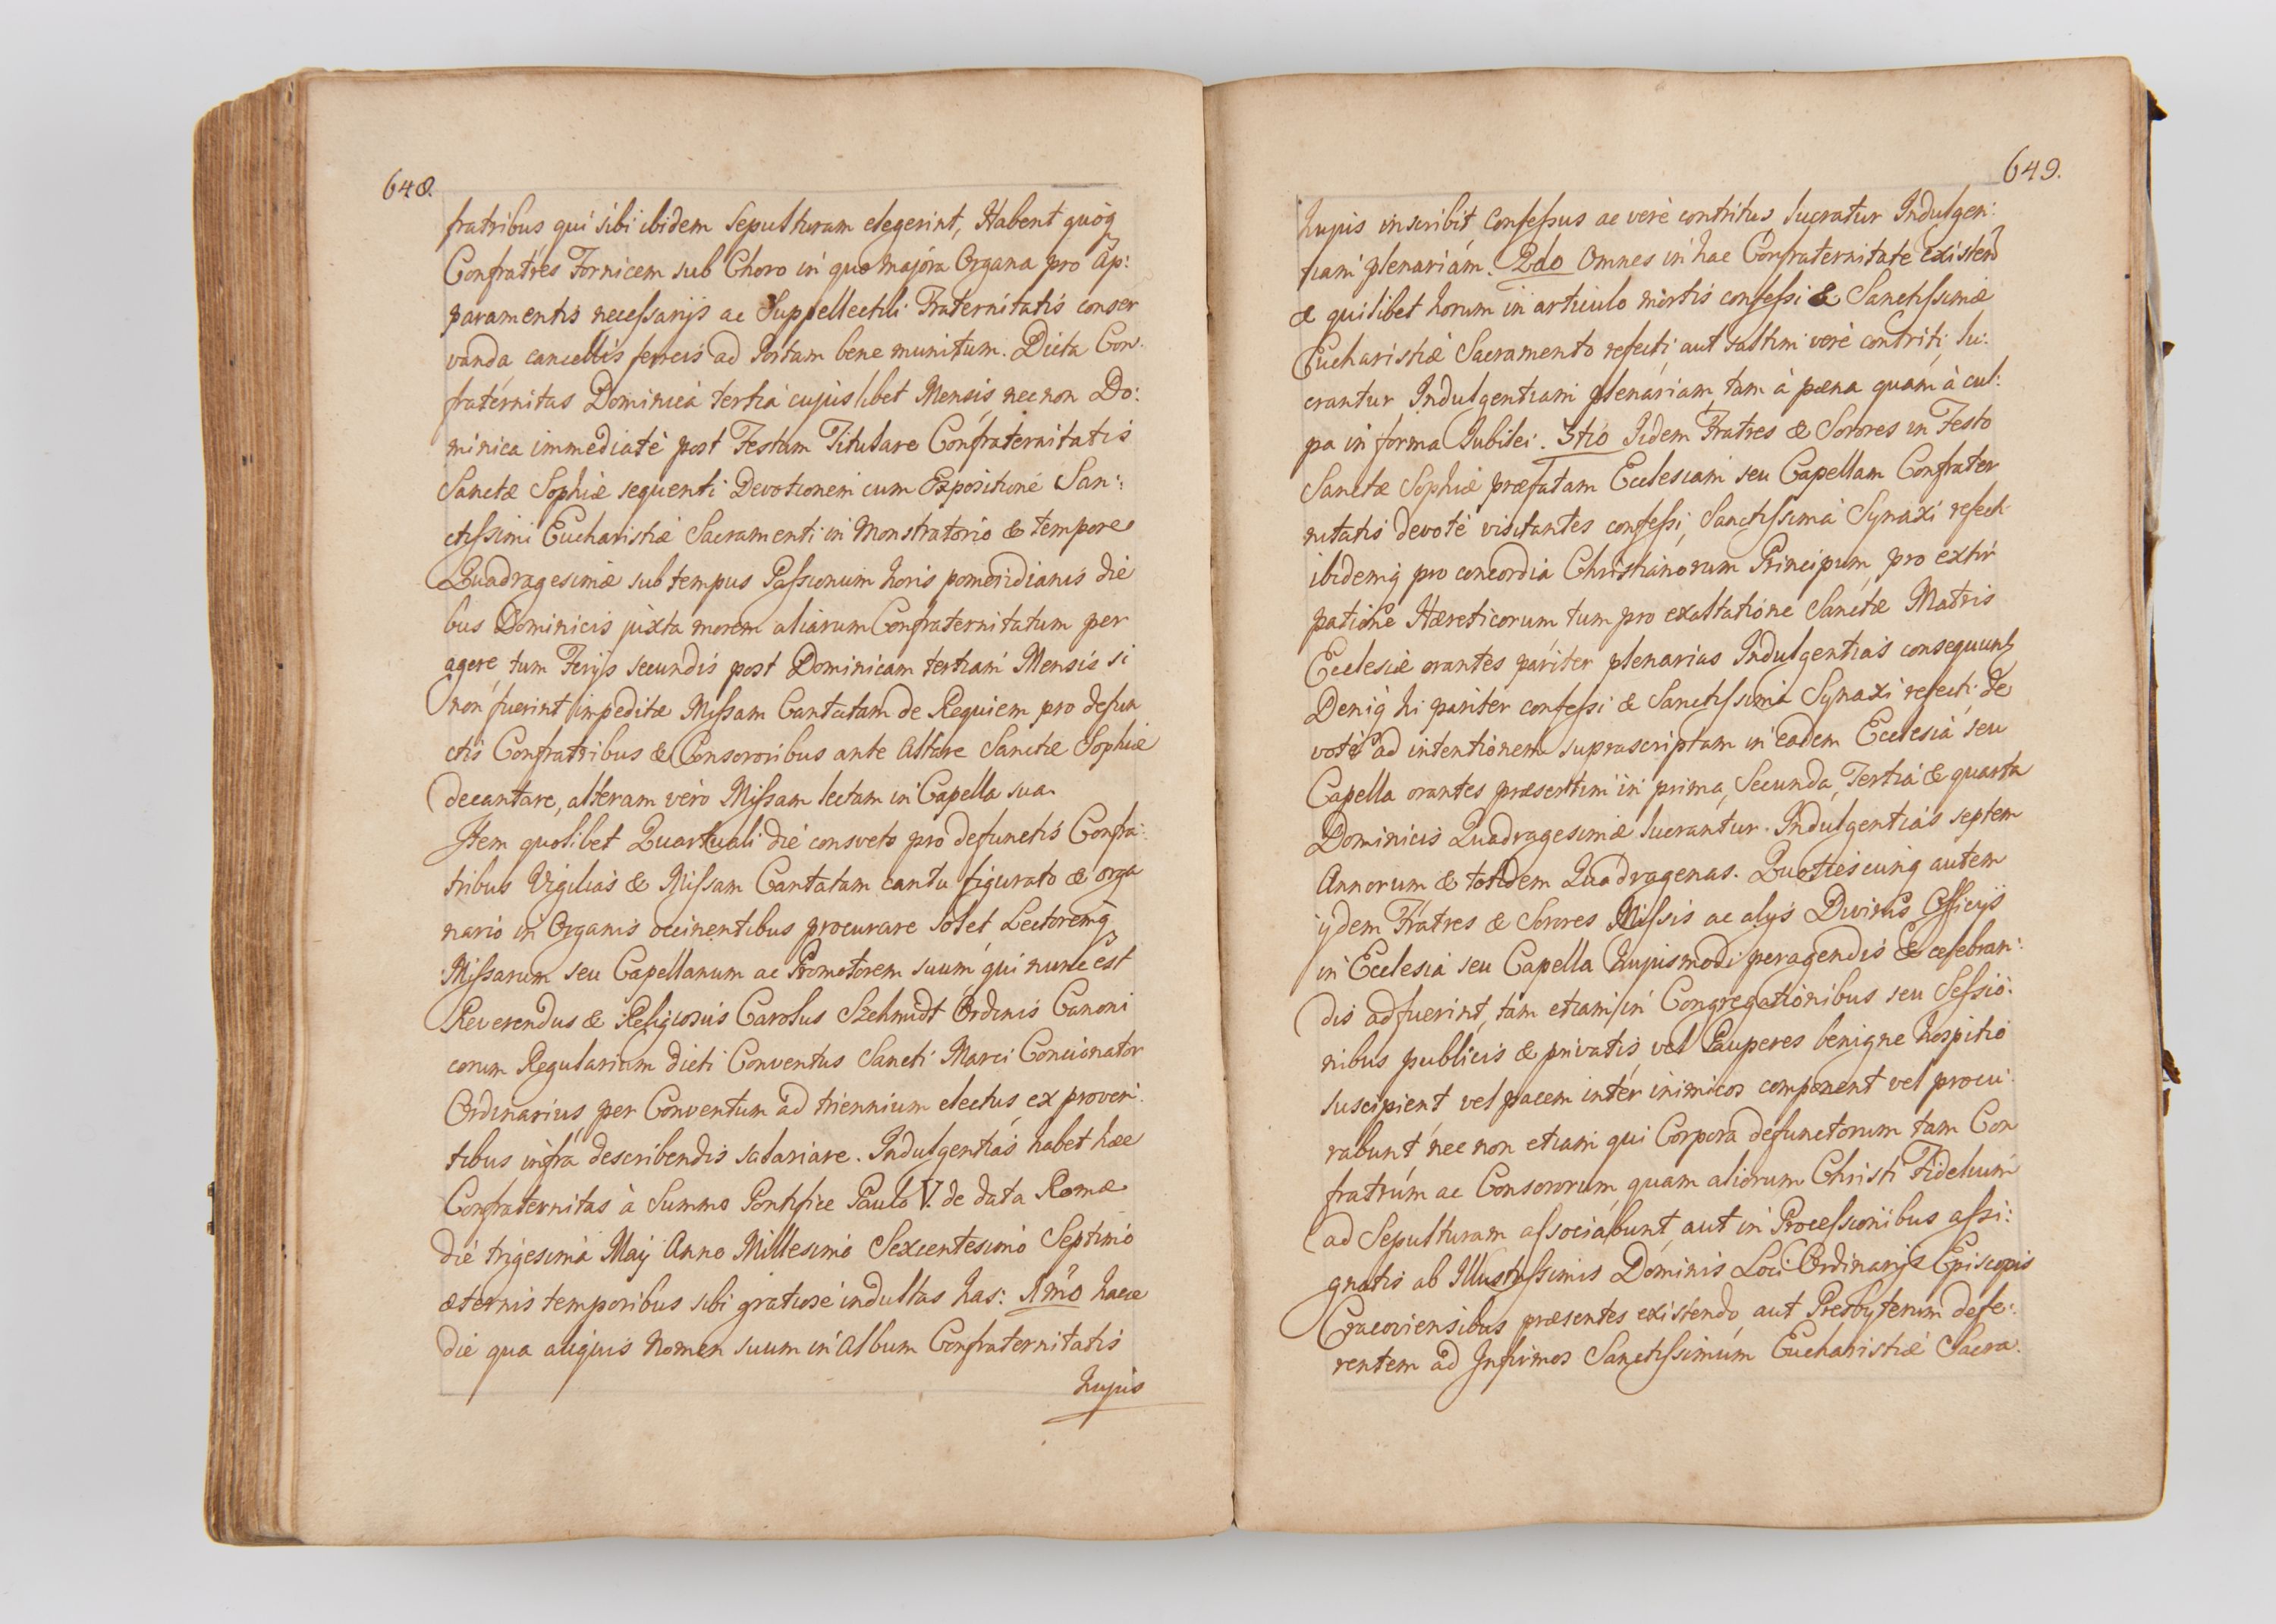 648.
fratribus qui sibi ibidem Sepulturam elegerint, Habent quoq
Confratres Fornicem sub Choro in quo majóra Organa pro Ap:
paramentis necessarijs ac Suppellectili Fraternitatis conser
vanda cancellis ferreis ad Portam bene munitum. Dicta Con
fraternitas Dominica tertia cujuslibet Mensis nec non Do:
minica immediatè post Festum Titulare Confraternitatis
Sanctæ Sophiæ sequenti Devotionem cum Expositione San:
ctissimi Eucharistiæ Sacramenti in Monstratorio & tempore
Quadragesimæ sub tempus Passionum horis pomeridianis die
bus Dominicis juxta morem aliarum Confraternitatum per
agere, tum Ferijs secundis post Dominicam tertiam Mensis si
non fuerint impeditæ Missam Cantatam de Requiem pro defun
ctis Confratribus & Consororibus ante Altare Sanctæ Sophiæ
decantare, alteram verò Missam lectam in Capella sua.
Item quolibet Quartuali die consveto pro defunctis Confra:
tribus Vigilias & Missam Cantatam cantu figurato & orga
nario in Organis occinentibus procurare solet Lectoremq
Missarum seu Capellanum ac Promotorem suum, qui nunc est
Reverendus & Religiosus Carolus Szehmidt Ordinis Canoni
corum Regularium dicti Conventus Sancti Marci Concionator
Ordinarius, per Conventum ad triennium electus, ex proven:
tibus infrà describendis salariare. Indulgentias habet hæc
Confraternitas à Summo Pontifice Paulo V. de data Romæ
die trigesima Maij Anno Millesimo Sexcentesimo Septimo
æternis temporibus sibi gratiose indultas has: 1mo hacce
die qua aliquis Nomen suum in Album Confraternitatis
hujus
649.
hujus inscribit, Confessus ac verè contritus lucratur Indulgen:
tiam plenariam. 2do Omnes in hac Confraternitate existen
& quilibet horum in articulo mortis confessi & Sanctissimæ
Eucharistiæ Sacramento refecti, aut saltim verè contriti, lu:
crantur Indulgentiam plenariam, tam à pæna quam à cul:
pa in forma Jubilei. 3tio Iidem Fratres & Sorores in Festo
Sanctæ Sophiæ præfatam Ecclesiam seu Capellam Confrater
nitatis devotè visitantes confessi, Sanctissima Synaxi refecti
ibidemq pro concordia Christianorum Principum, pro extir
patione Hæreticorum tum pro exaltatione Sanctæ Matris
Ecclesiæ orantes pariter plenarias Indulgentias consequunt
Deniq hi pariter confessi & Sanctissima Synaxi refecti de
votè ad intentionem suprascriptam in eadem Ecclesia seu
Capella orantes præsertim in prima, Secunda, Tertia & quarta
Dominicis Quadragesimæ lucrantur Indulgentias septem
Annorum & totidem Quadragenas. Quotiescunq autem
ijdem Fratres & Sorores Missis ac alijs Divinis Officijs
in Ecclesia seu Capella hujusmodi peragendis & celebran:
dis adfuerint, tam etiam in Congregationibus seu Sessio:
nibus publicis & privatis, vel Pauperes benigne hospitio
suscipient vel pacem intér inimicos component vel procu
rabunt nec non etiam qui Corpora defunctorum tam Con
fratrum ac Consororum, quam aliorum Christi Fidelium
ad Sepulturam associabunt, aut in Processionibus assi:
gnatis ab Illustrissimis Dominis Loci Ordinarijs Episcopis
Cracoviensibus præsentes existendo, aut Presbyterum defe:
rentem ad Infirmos Sanctissimum Eucharistiæ Sacra: